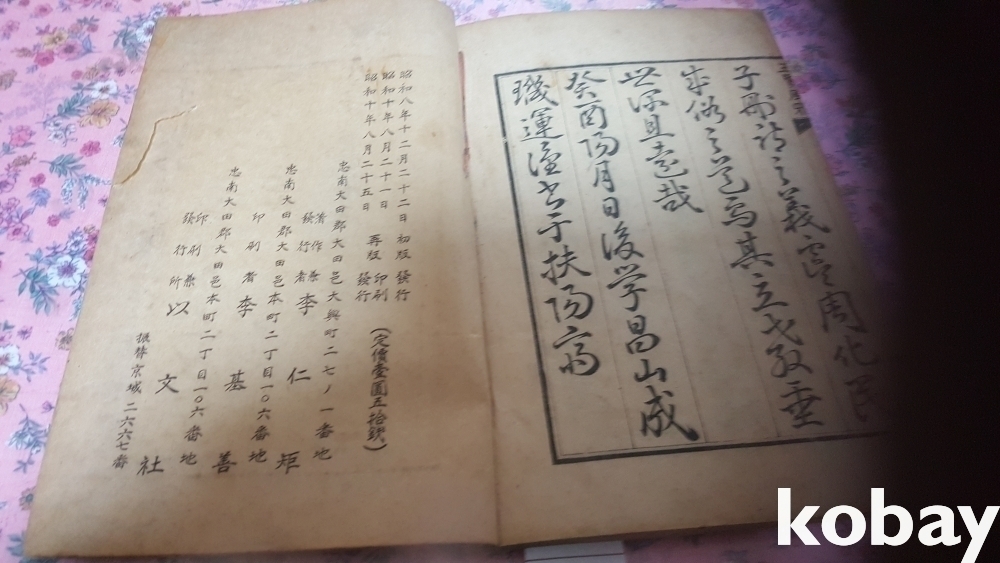 子刪詩之義
周化民
成俗之道焉其立교垂
世深且遠哉
癸酉陽月日後学昌山成
璣運謹書于扶陽齋
昭和八年十二月二十二日 初版 發行
昭和十年八月二十一日 印刷
昭和十年八月二十五日 再版 發行
(定價壹圓五拾錢)
忠南大田郡大田邑大興町二七ノ一番地
著作兼
發行者 李仁矩
忠南大田郡大田邑本町二丁目一〇六番地
印刷者 李基善
忠南大田郡大田邑本町二丁目一〇六番地
印刷兼
發行所 以文社
振替京城二六六七番
kobay